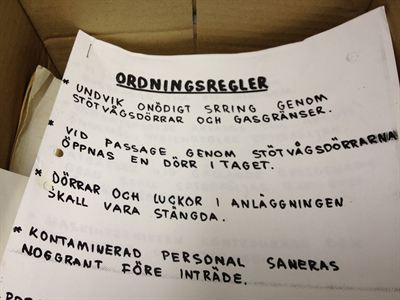 ORDNINGSREGLER
* UNDVIK ONÖDIGT SRRING GENOM
STÖTVÅGSDÖRRAR OCH GASGRÄNSER.
* VID PASSAGE GENOM STÖTVÅGSDÖRRARNA
ÖPPNAS EN DÖRR I TAGET.
* DÖRRAR OCH LUCKOR I ANLÄGGNINGEN
SKALL VARA STÄNGDA.
* KONTAMINERAD PERSONAL SANERAS
NOGGRANT FÖRE INTRÄDE.